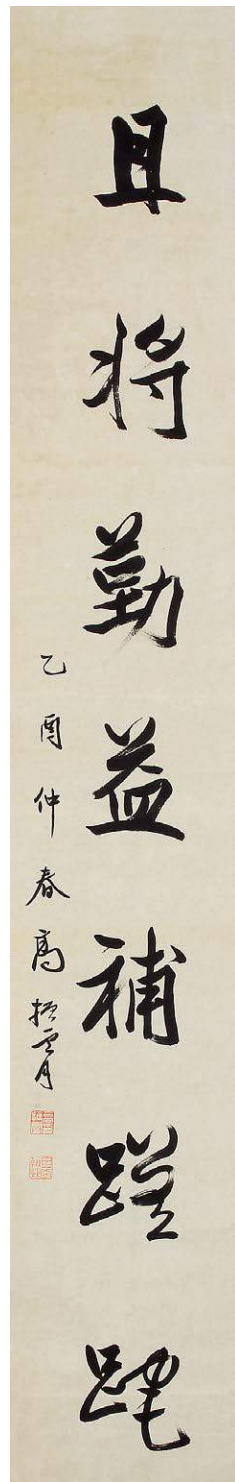 且将勤益補蹉跎
乙酉仲春高振霄